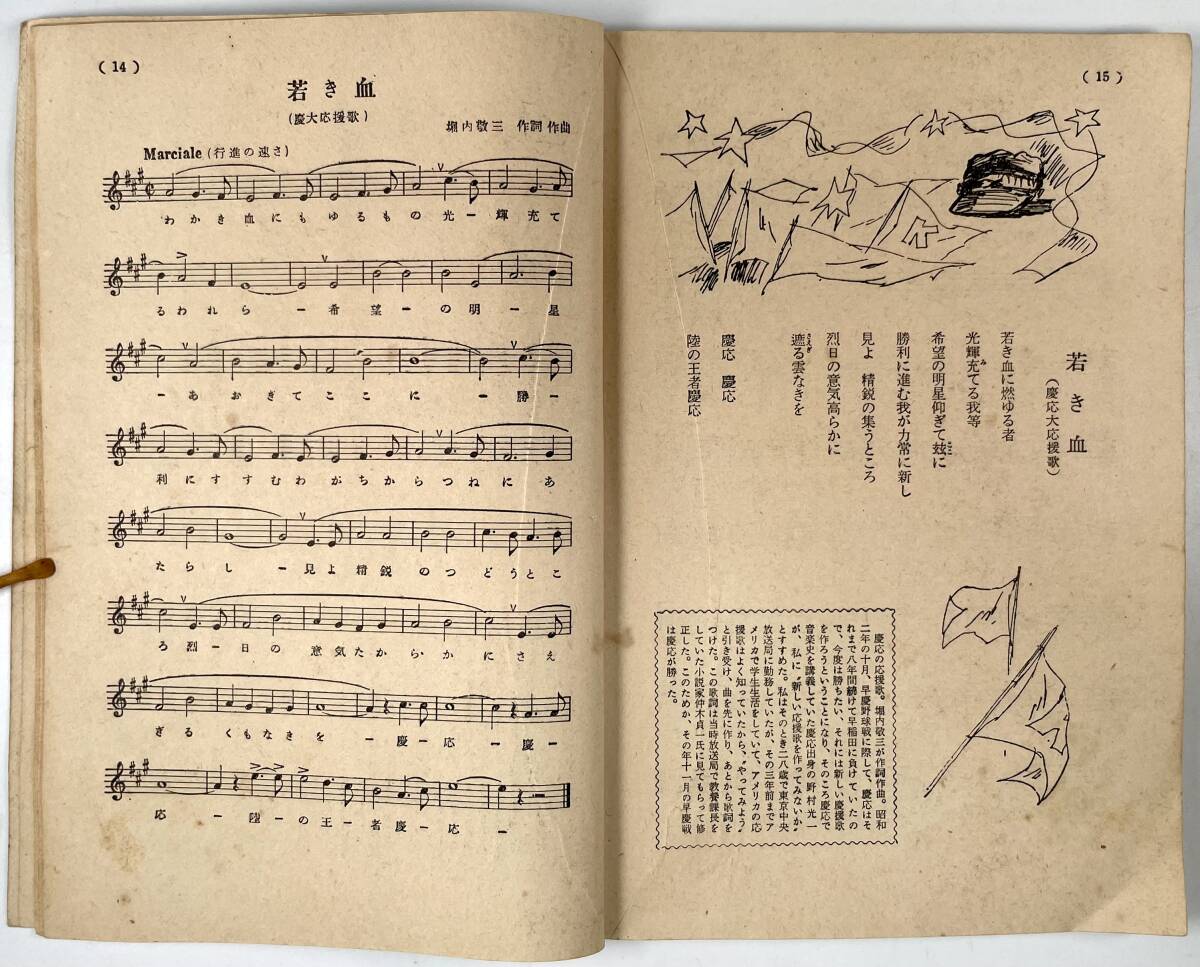 (14)
若き血
(慶大応援歌)
堀内敬三 作詞作曲
Marciale (行進の速さ)
わかき血にもゆるもの光ー輝充て
るわれらー希望ーの明ー星
ーあおぎてここにー勝ー
利にすすむわがちからつねにあ
たらしー見よ精鋭のつどうとこ
ろ烈ー日の意気たからかにさえ
ぎるくもなきをー慶ー応ー慶ー
応ー陸ーの王ー者慶ー応ー
(15)
若き血
(慶応大応援歌)
若き血に燃ゆる者
光輝充てる我等
み
希望の明星仰ぎて玆に
ここ
勝利に進む我が力常に新し
見よ 精鋭の集うところ
烈日の意気高らかに
遮る雲なきを
さえぎ
慶応 慶応
陸の王者慶応
慶応の応援歌。堀内敬三が作詞作曲。昭和
二年の十月、早慶野球戦に際して、慶応はそ
れまで八年間続けて早稲田に負けていたの
で、今度は勝ちたい、それには新しい応援歌
を作ろうということになり、そのころ慶応で
音楽史を講義していた慶応出身の野村光一
が、私に〝新しい応援歌を作ってみないか〟
とすすめた。私はそのとき二八歳で東京中央
放送局に勤務していたが、その三年前までア
メリカで学生生活をしていて、アメリカの応
援歌はよく知っていたから、〝やってみよう〟
と引き受け、曲を先に作り、あとから歌詞を
つけた。この歌詞は当時放送局で教養課長を
していた小説家仲木貞一氏に見てもらって修
正した。このためか、その年十一月の早慶戦
は慶応が勝った。